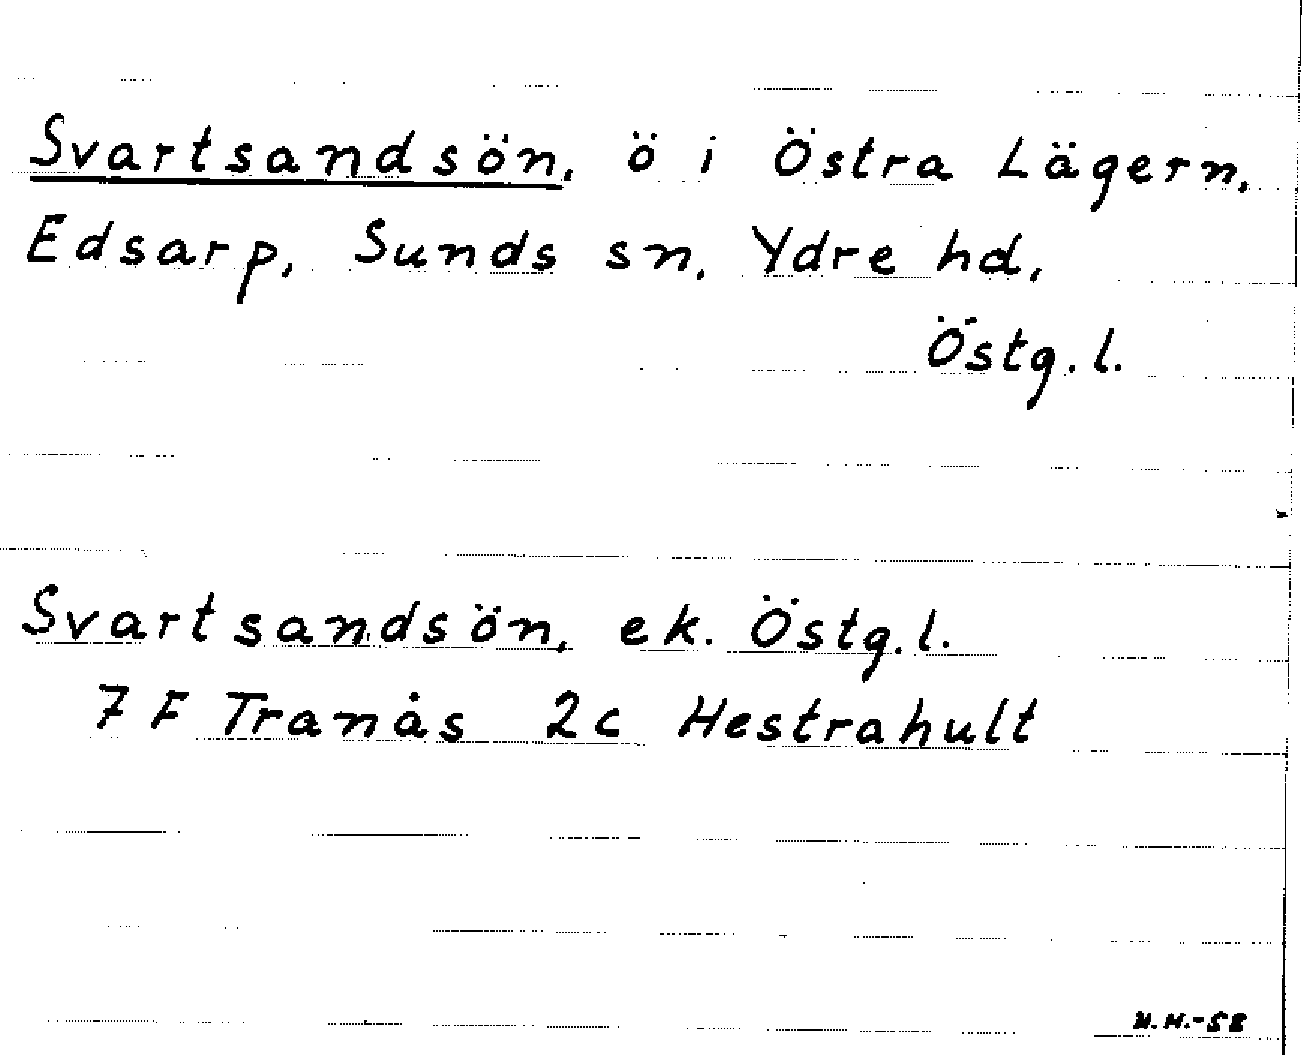 Svartsandsön, ö i Östra Lägern,
Edsarp, Sunds sn, Ydre hd,
Östg. l.
Svartsandsön, ek. Östg. l.
7 F Tranås 2c Hestrahult